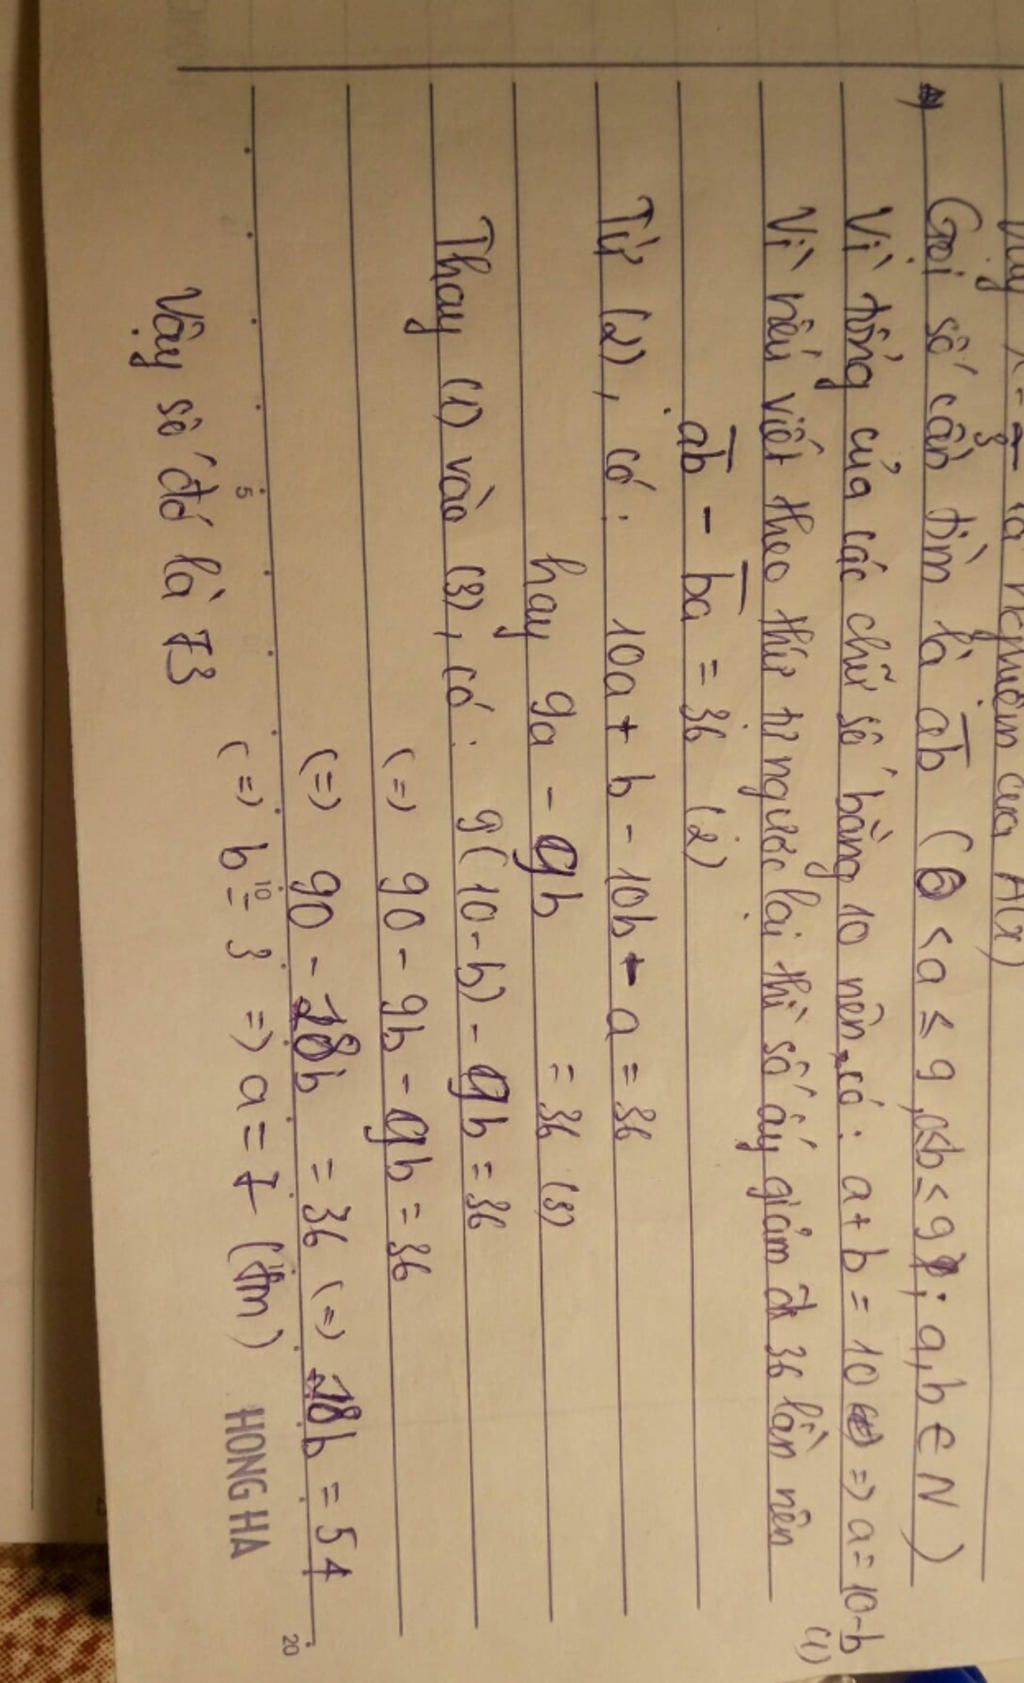 Vậy x = là nghiệm của A(x)
4) Gọi số cần tìm là ab (0 < a ≤ 9, 0<b≤9; a,b ∈ N)
Vì tổng của các chữ số bằng 10 nên có: a + b = 10 => a = 10-b (1)
Vì nếu viết theo thứ tự ngược lại thì số ấy giảm đi 36 lần nên
ab - ba = 36 (2)
Từ (2), có: 10a + b - 10b - a = 36
hay 9a - 9b = 36 (3)
Thay (1) vào (3), có: 9(10-b) - 9b = 36
(=) 90 - 9b - 9b = 36
(=) 90 - 18b = 36 (=) 18b = 54
(=) b = 3 => a = 7 (tm)
Vậy số đó là 73
5 10 20
HONG HA